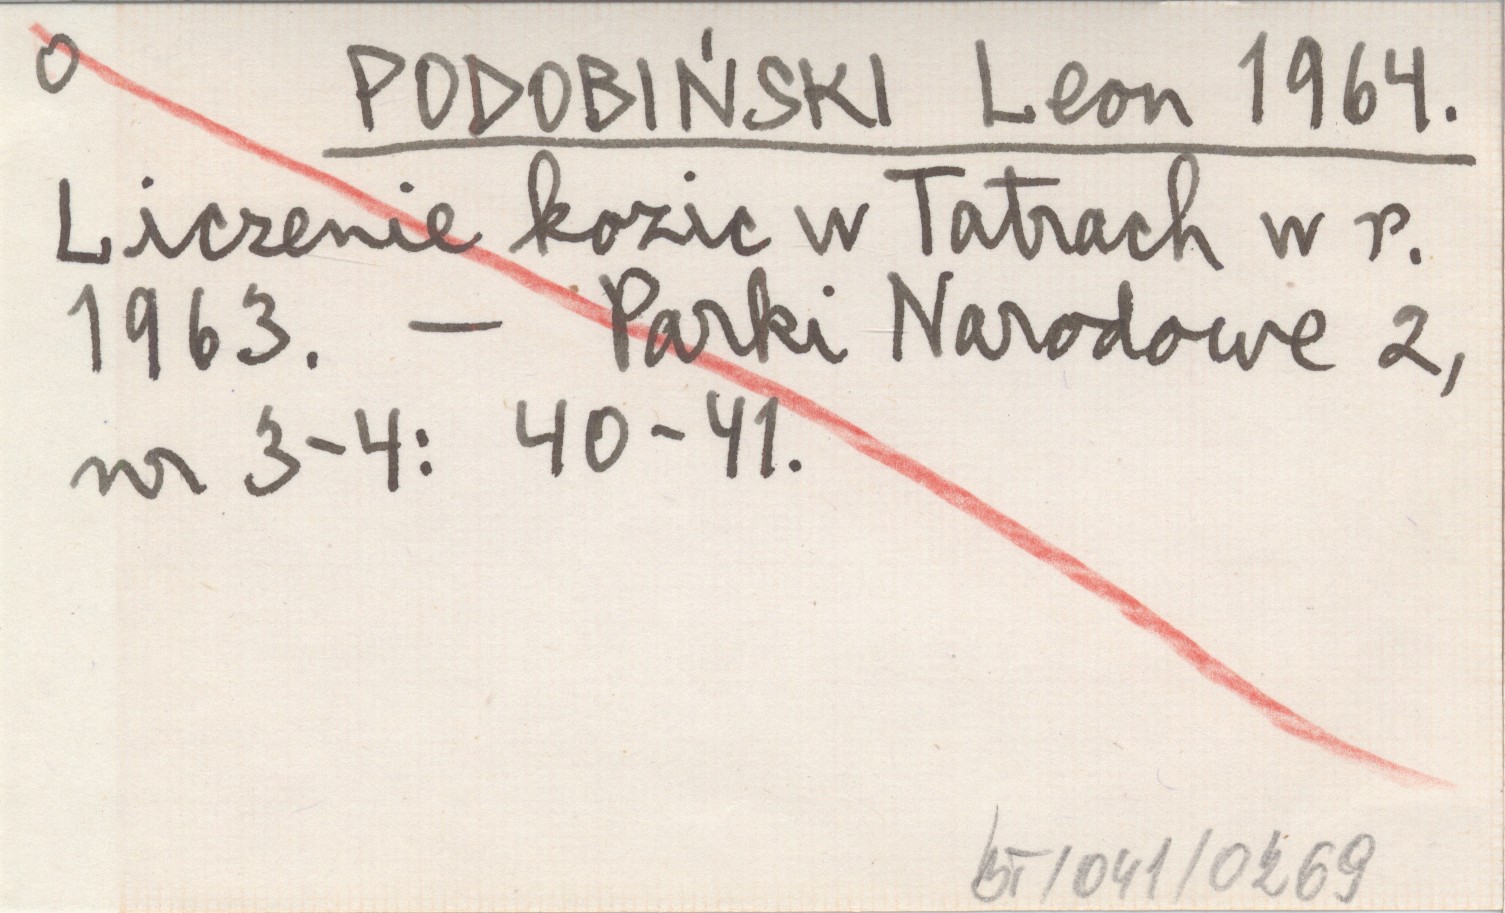 o PODOBIŃSKI Leon 1964.
Liczenie kozic w Tatrach w r.
1963. — Parki Narodowe 2,
nr 3-4: 40-41.
BT/041/0269